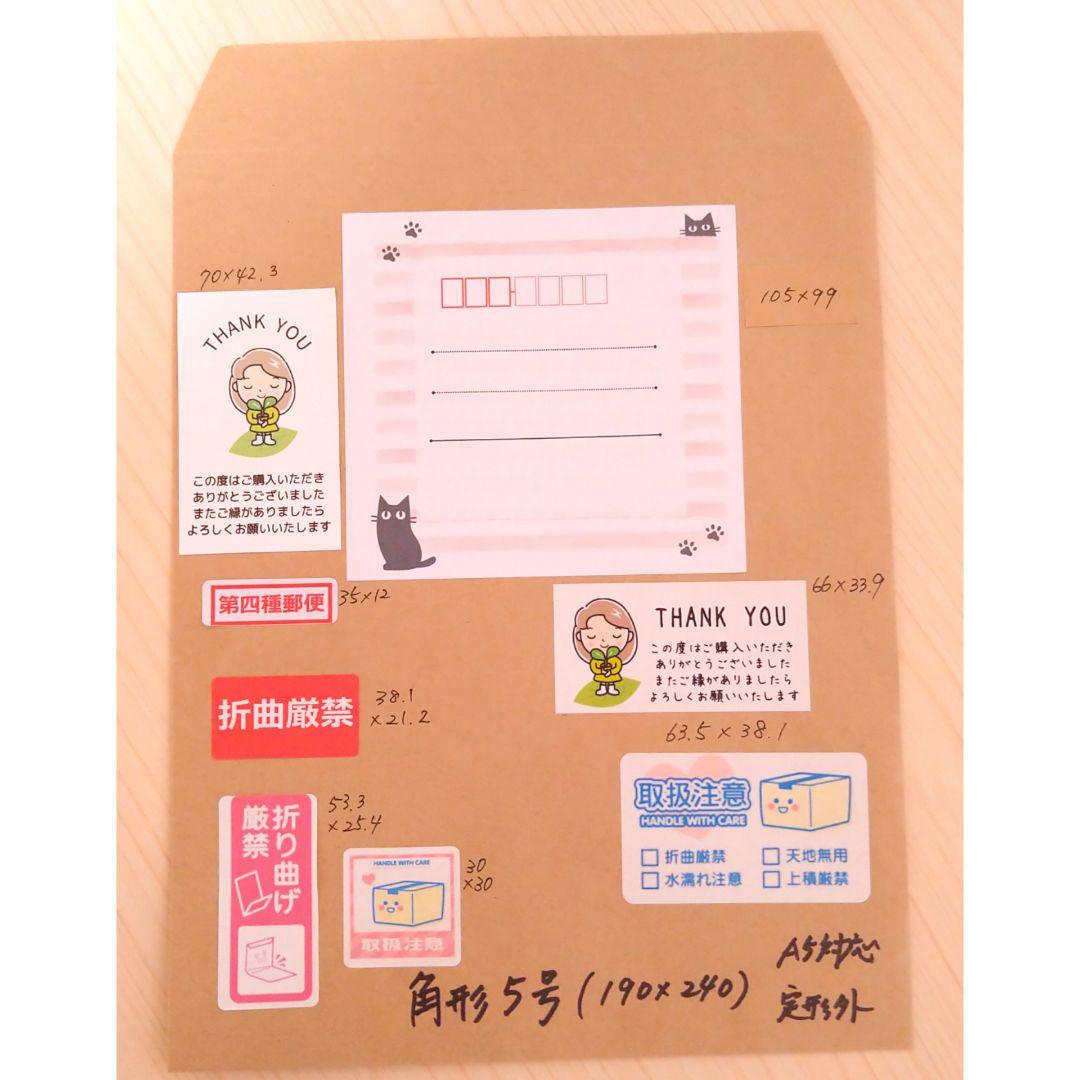 70×42.3
THANK YOU
この度はご購入いただき
ありがとうございました
またご縁がありましたら
よろしくお願いいたします
105×99
第四種郵便
35×12
66×33.9
THANK YOU
この度はご購入いただき
ありがとうございました
またご縁がありましたら
よろしくお願いいたします
折曲厳禁
38.1
×21.2
63.5×38.1
取扱注意
HANDLE WITH CARE
折曲厳禁
天地無用
水濡れ注意
上積厳禁
折り曲げ
厳禁
53.3
×25.4
HANDLE WITH CARE
取扱注意
30
×30
角形5号(190×240)
A5対応
定形外